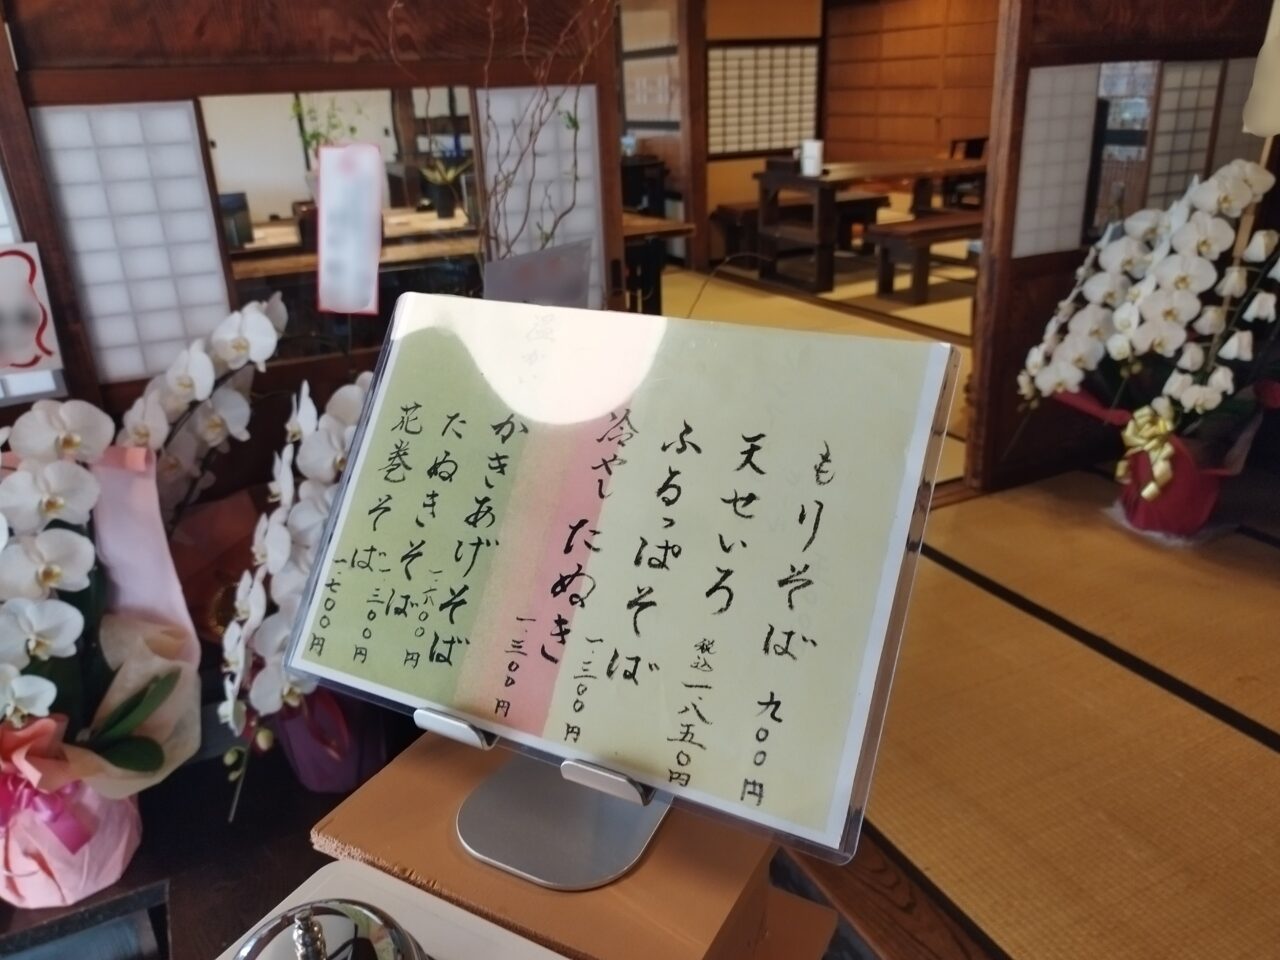 もりそば 九〇〇円
天せいろ 税込 一、八五〇円
ふるっぱそば 一、三〇〇円
冷やしたぬき 一、三〇〇円
温かい
かきあげそば 一、六〇〇円
たぬきそば 一、三〇〇円
花巻そば 一、七〇〇円